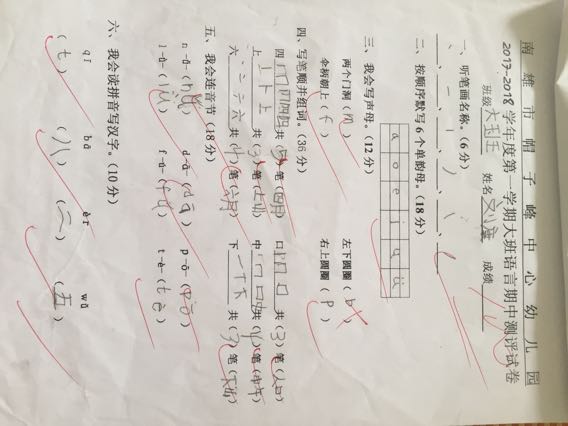 南雄市帽子峰中心幼儿园
2017-2018学年度第一学期大班语言期中测评试卷
班级 姓名 成绩
一、听笔画名称。(6分)
二、按顺序默写6个单韵母。(18分)
a o e i u ü
三、我会写声母。(12分)
两个门洞(m) 左下圆圈(b)
伞柄朝上(f) 右上圆圈(p)
四、写笔顺并组词。(36分)
四 共(5)笔 口 共(3)笔(人口)
上 共(3)笔(上山) 中 共(4)笔
六 共(4)笔 下 共(3)笔
五、我会连音节(18分)
n-ǚ-( ) d-ā-(dā) p-ō-(pō)
l-ǜ-( ) f-ú-(fú) t-è-(tè)
六、我会读拼音写汉字。(10分)
qī bā èr wǔ
(七) (八) (二) (五)